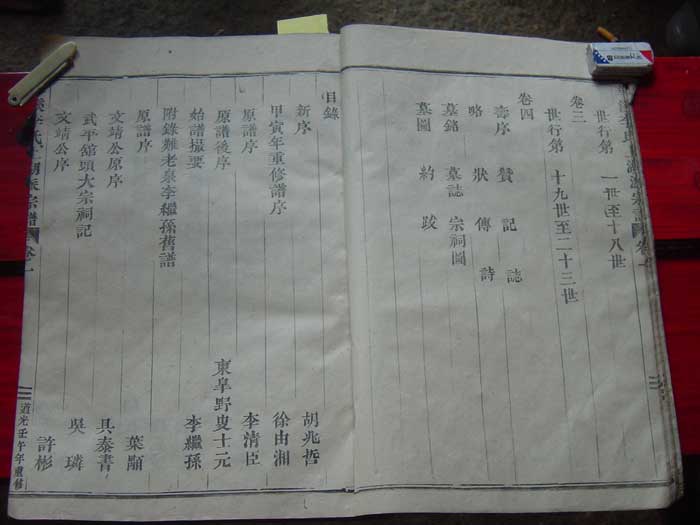 世行第 一世至十八世
卷三
世行第 十九世至二十三世
卷四
壽序 贊 記 誌
略 狀 傳 詩
墓銘 墓誌 宗祠圖
墓圖 約 跋
目錄
新序 胡兆哲
甲寅年重修譜序 徐由湘
原譜序 李清臣
原譜後序 東皐野叟士元
始譜撮要 李繼孫
附錄難老泉李繼孫舊譜
原譜序 葉顒
文靖公原序 具泰書
武平館頭大宗祠記 吳璘
文靖公序 許彬
宗譜 卷一
道光壬午年重修